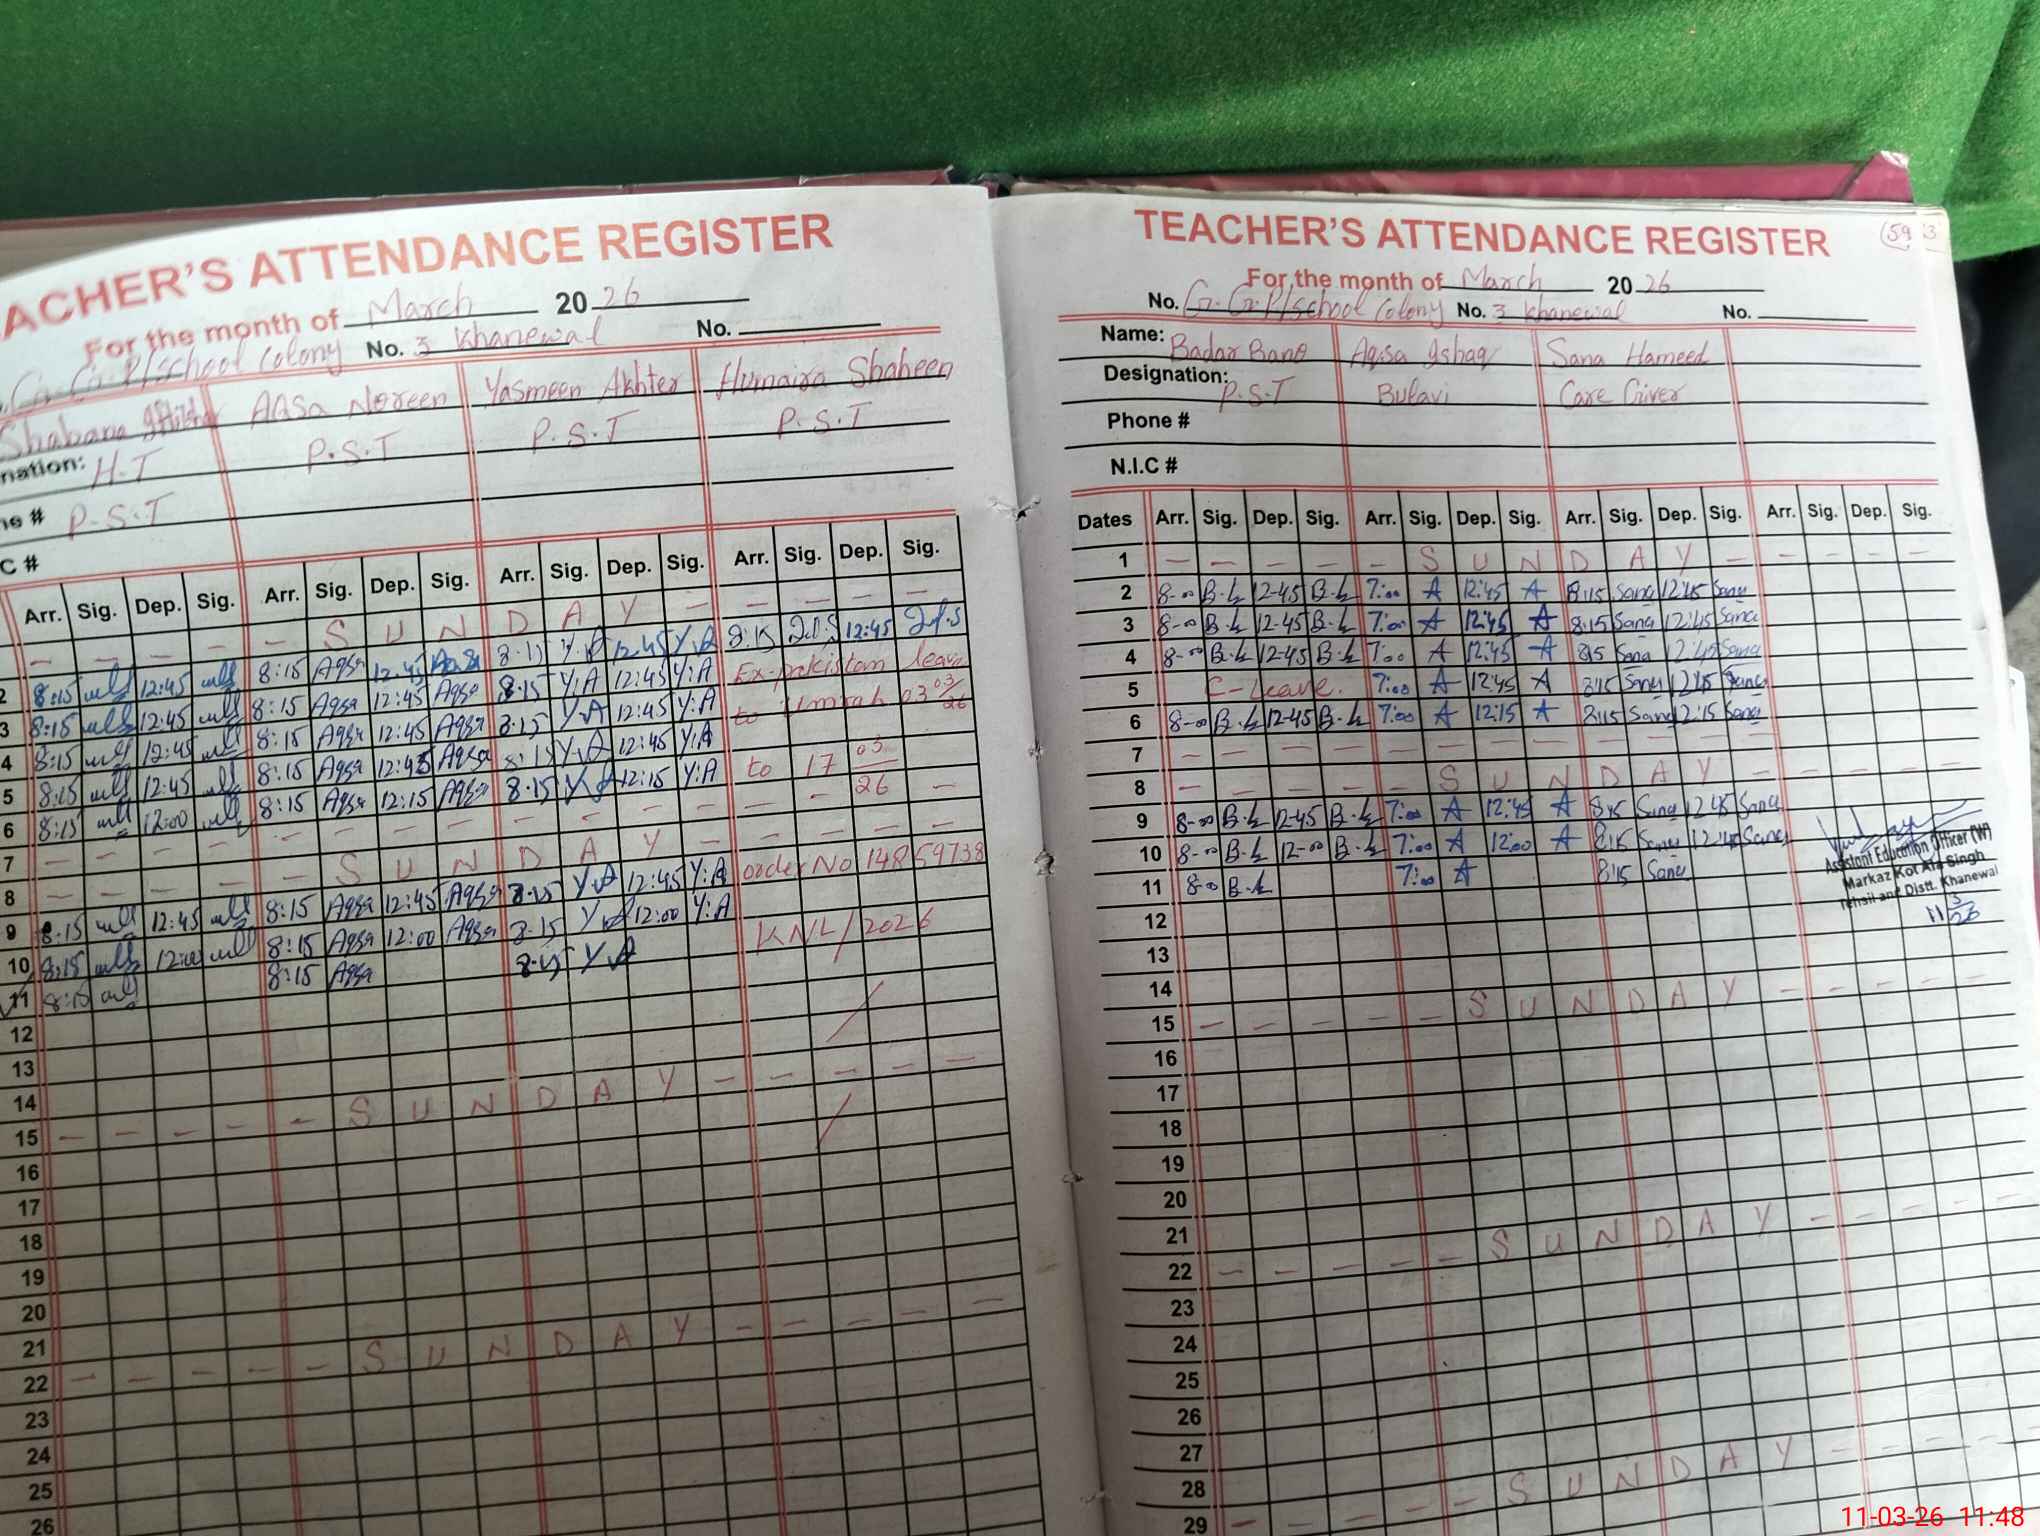 ACHER'S ATTENDANCE REGISTER
For the month of March 2026
G. G. P/school Colony No. 3 Khanewal No.
Shabana AQSA Noreen Yasmeen Akhter Humaira Shaheen
nation: H-T P.S.T P.S.T P.S.T
ne # P.S.T
C #
Arr. Sig. Dep. Sig. Arr. Sig. Dep. Sig. Arr. Sig. Dep. Sig. Arr. Sig. Dep. Sig.
— — — — — S U N D A Y — — — — —
2 8:15 12:45 8:15 Aqsa 12:45 Aqsa 8:15 Y.A 12:45 Y.A 8:15 12:45
3 8:15 12:45 8:15 Aqsa 12:45 Aqsa 8:15 Y:A 12:45 Y:A Ex-pakistan leave
4 8:15 12:45 8:15 Aqsa 12:45 Aqsa 8:15 Y.A 12:45 Y:A to Umrah 03 03/26
5 8:15 12:45 8:15 Aqsa 12:45 Aqsa 8:15 Y.A 12:45 Y:A
6 8:15 12:00 8:15 Aqsa 12:15 Aqsa 8:15 Y.A 12:15 Y:A to 17 03/26
7 — — — — — — — — — — — —
8 — — — — — S U N D A Y — —
9 8:15 12:45 8:15 Aqsa 12:45 Aqsa 8:15 Y.A 12:45 Y:A order No 14859738
10 8:15 12:00 8:15 Aqsa 12:00 Aqsa 8:15 Y.A 12:00 Y:A
11 8:15 8:15 Aqsa 8:15 Y.A KNL/2026
12
13
14
15 — — — — — S U N D A Y — — — — —
16
17
18
19
20
21
22 — — — — — S U N D A Y — — — — —
23
24
25
26
TEACHER'S ATTENDANCE REGISTER 59 3
For the month of March 2026
No. G. G. P/school Colony No. 3 Khanewal No.
Name: Badar Bano Aqsa Ishaq Sana Hameed
Designation: P.S.T Bulavi Care Giver
Phone #
N.I.C #
Dates Arr. Sig. Dep. Sig. Arr. Sig. Dep. Sig. Arr. Sig. Dep. Sig. Arr. Sig. Dep. Sig.
1 — — — — — S U N D A Y — — — — —
2 8-00 12-45 7:00 A 12:45 A 8:15 Sana 12:45 Sana
3 8-00 12-45 7:00 A 12:45 A 8:15 Sana 12:45 Sana
4 8-00 12-45 7:00 A 12:45 A 8:15 Sana 12:45 Sana
5 C-Leave. 7:00 A 12:45 A 8:15 Sana 12:45 Sana
6 8-00 12-45 7:00 A 12:15 A 8:15 Sana 12:15 Sana
7 — — — — — — — — — — — —
8 — — — — — S U N D A Y — — — — —
9 8-00 12-45 7:00 A 12:45 A 8:15 Sana 12:45 Sana
10 8-00 12-00 7:00 A 12:00 A 8:15 Sana Sana
11 8-00 7:00 A 8:15 Sana
12
13
14
15 — — — — — S U N D A Y — — — — —
16
17
18
19
20
21
22 — — — — — S U N D A Y — — — — —
23
24
25
26
27
28
29 — — — S U N D A Y — — — —
Assistant Education Officer (W)
Markaz Kot Ala Singh
Tehsil and Distt. Khanewal
11 3/26
11-03-26 11:48